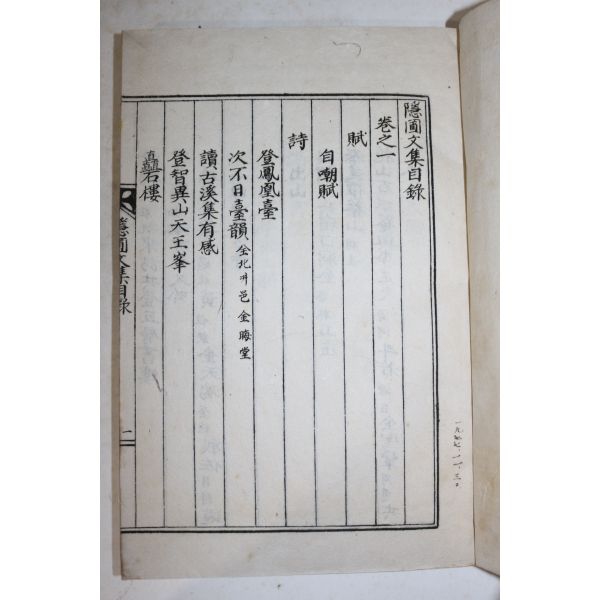 隱圃文集目錄
卷之一
賦
自嘲賦
詩
登鳳凰臺
次不日臺韻 金北 邑 金晦堂
讀古溪集有感
登智異山天王峯
矗石樓
隱圃文集目錄
一